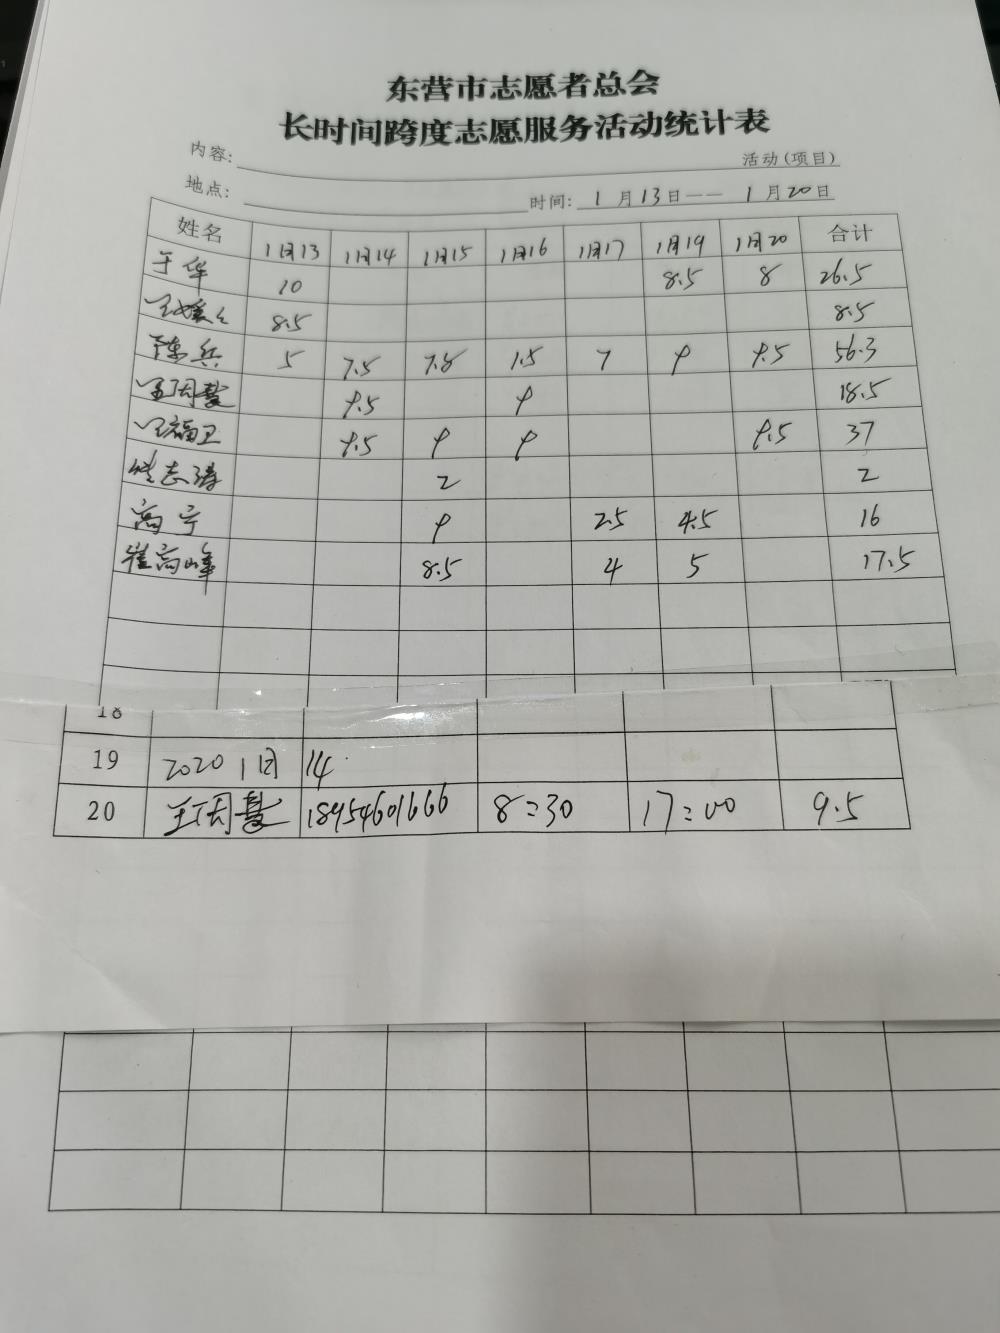 东营市志愿者总会
长时间跨度志愿服务活动统计表
内容: 活动(项目)
地点: 时间: 1月13日——1月20日
姓名 1月13 1月14 1月15 1月16 1月17 1月19 1月20 合计
于华 10 8.5 8 26.5
8.5 8.5
陈兵 5 7.5 7.8 7 9 9.5 56.3
9.5 9 18.5
王福卫 9.5 9 9 9.5 37
志涛 2 2
高宁 9 2.5 4.5 16
崔高峰 8.5 4 5 17.5
18
19 2020 1月 14
20 18954601666 8:30 17:00 9.5